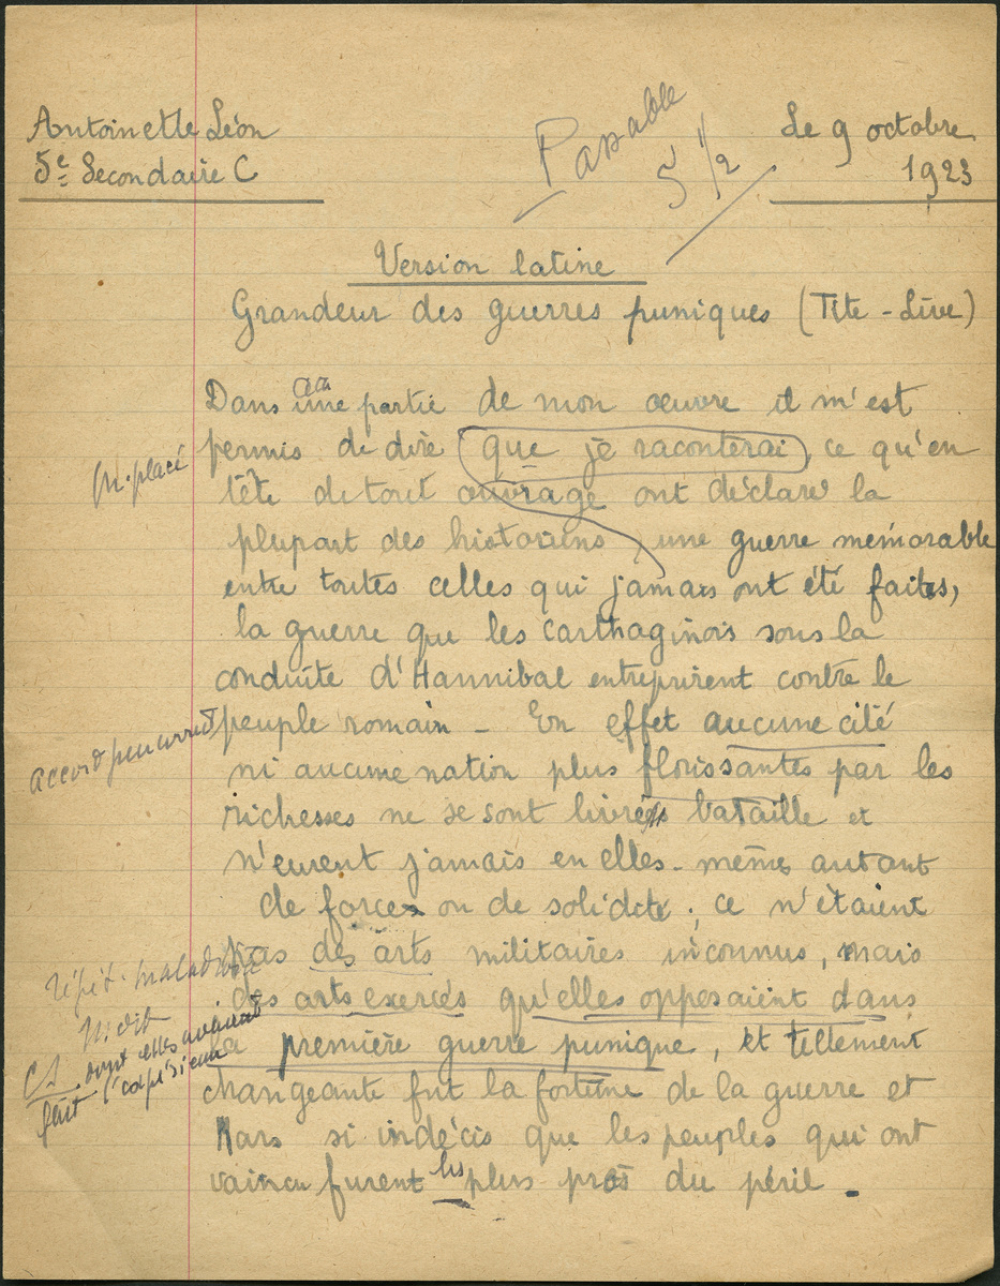 Antoinette Léon
5e Secondaire C
Passable
5 1/2
Le 9 octobre
1923
Version latine
Grandeur des guerres puniques (Tite-Live)
Dans une partie de mon œuvre il m'est
permis de dire que je raconterai, ce qu'en
m. placé
tête de tout ouvrage ont déclaré la
plupart des historiens, une guerre mémorable
entre toutes celles qui jamais ont été faites,
la guerre que les carthaginois sous la
conduite d'Hannibal entreprirent contre le
peuple romain - En effet aucune cité
accord peu correct
ni aucune nation plus florissantes par les
richesses ne se sont livrés bataille et
n'eurent jamais en elles-même autant
de forces ou de solidité ; ce n'étaient
pas des arts militaires inconnus, mais
répét. maladroite
des arts exercés qu'elles opposaient dans
la première guerre punique, et tellement
N. dit
C.S. dont elles avaient
fait l'expérience
changeante fut la fortune de la guerre et
Mars si indécis que les peuples qui ont
vaincu furent les plus près du péril.